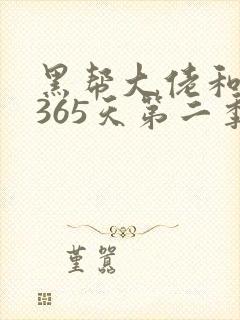 黑帮大佬和
365天第二季
堇嚣